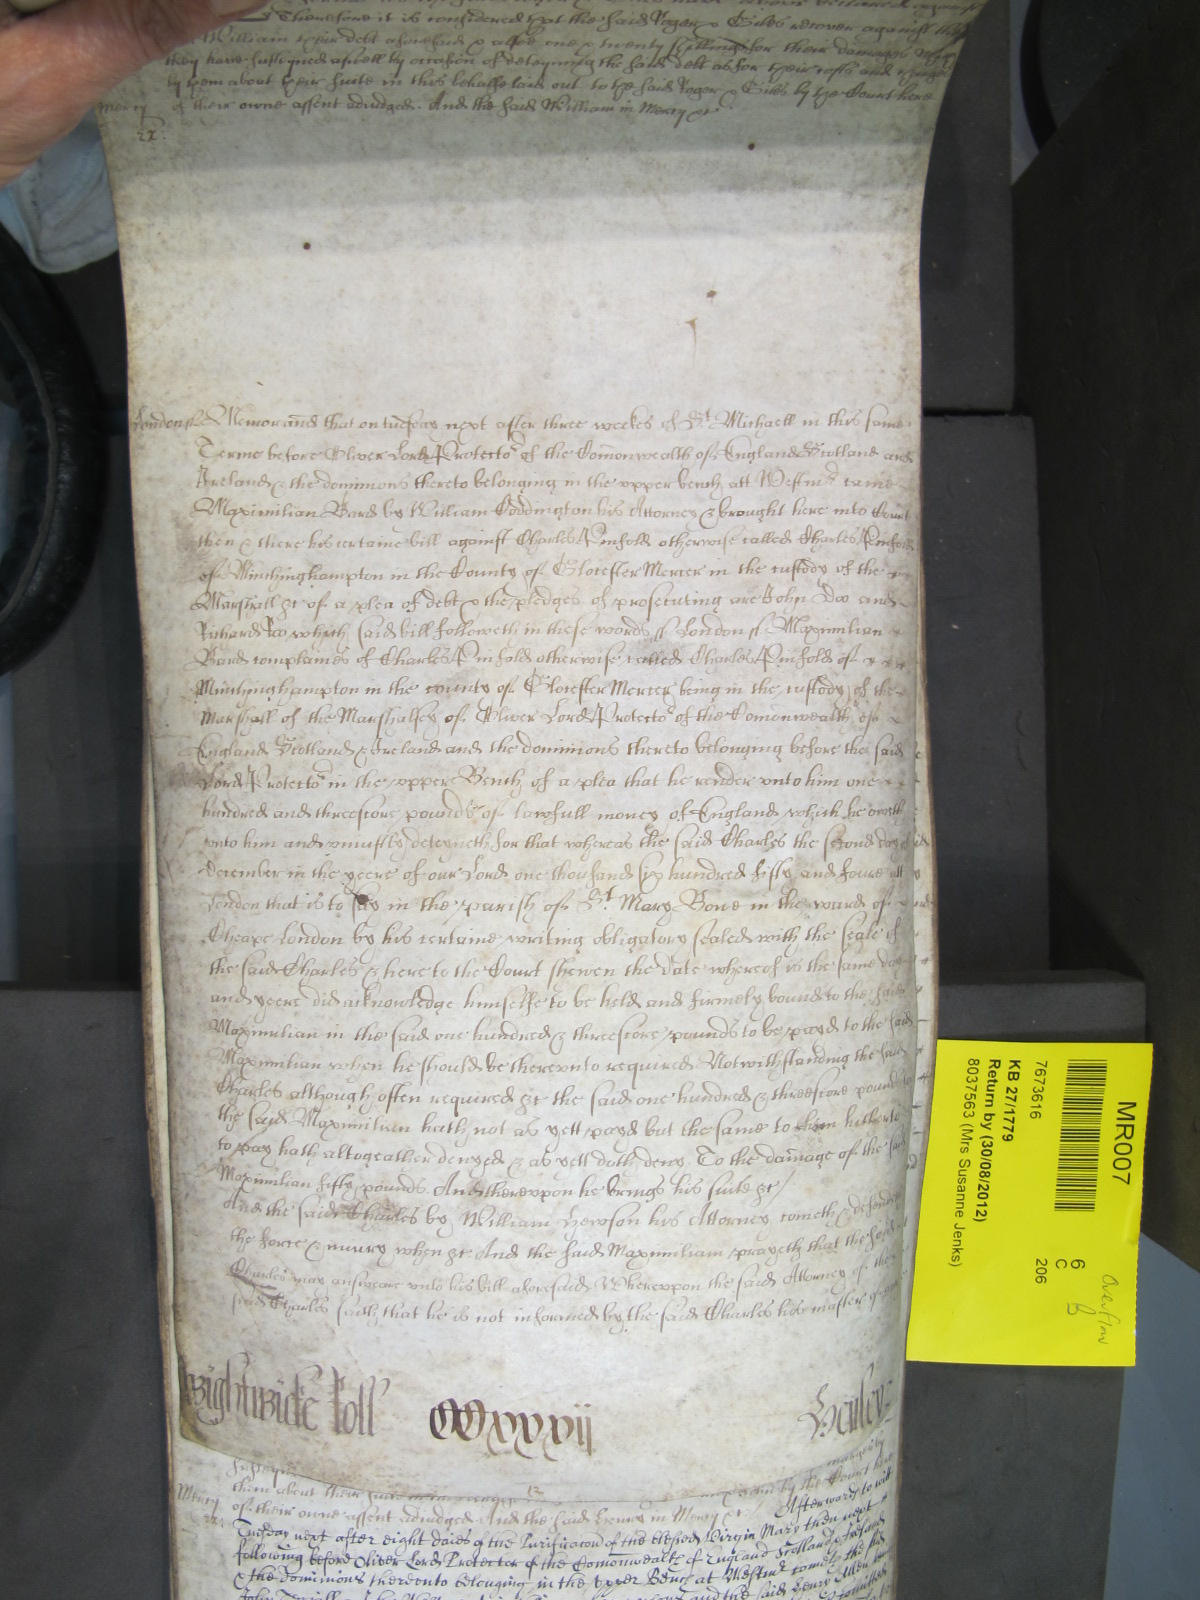 Therefore it is considered that the said Roger & Giles recover against the
William their debt aforesaid & alsoe one & twenty shillings for their damages
they have susteyned aswell by occasion of deteyning the said debt as for their costs and
by them about their suite in this behalfe laid out to the said Roger & Giles by the Court here
Mercy of their owne assent adiudged. And the said William in Mercy &c
London ss Memorand that on tuesday next after three weekes of St Michaell in this same
Terme before Oliver Lord Protector of the Comonwealth of England Scotland and
Ireland & the dominions thereto belonging in the upper bench att Westmr came
Maximilian Bard by William Coddington his Attorney & brought here into Court
then & there his certaine bill against Charles Pinfold otherwise called Charles Pinfold
of Minchinghampton in the County of Glocester Mercer in the custody of the
Marshall &c of a plea of debt & the pledges of prosecuting are John Doo and
Richard Roo which said bill followeth in these words ss London ss Maximilian
Bard complaines of Charles Pinfold otherwise called Charles Pinfold of
Minchinghampton in the county of Glocester Mercer being in the custody of the
Marshall of the Marshalsey of Oliver Lord Protector of the Comonwealth of
England Scotland & Ireland and the dominions thereto belonging before the said
Lord Protector in the upper Bench of a plea that he render unto him one
hundred and threescore pounds of lawfull money of England which he oweth
unto him and uniustly deteyneth for that whereas the said Charles the second day of
december in the yeere of our Lord one thousand six hundred fifty and foure att
London that is to say in the parish of St Mary Bowe in the ward of
Cheape London by his certaine writing obligatory sealed with the seale of
the said Charles & here to the Court shewen the date whereof is the same day
and yeere did acknowledge himselfe to be held and firmely bound to the said
Maximilian in the said one hundred & threescore pounds to be payd to the said
Maximilian when he should be thereunto required Notwithstanding the said
Charles although often required &c the said one hundred & threescore pounds
the said Maximilian hath not as yett payd but the same to him hitherto
to pay hath altogeather denyed & as yett doth deny. To the damage of the said
Maximilian fifty pounds. And thereupon he brings his suite &c
And the said Charles by William Hewson his Attorney cometh & defendeth
the force & iniury when &c And the said Maximilian prayeth that the said
Charles may answeare unto his bill aforesaid Whereupon the said Attorney of the
said Charles saith that he is not informed by the said Charles his master
Wightwicke Roll CCxxxvij Henley
them about their suite
Mercy of their owne assent adiudged And the said Henry in Mercy &c Afterwards to witt
Tuesday next after eight daies of the Purificacon of the blessed Virgin Mary then next
following before Oliver Lord Protector of the Comonwealth of England Scotland & Ireland
& the dominions thereunto belonging in the Upper Bench at Westmr cometh the said
MR007
7673616
KB 27/1779
Return by (30/08/2012)
8037563 (Mrs Susanne Jenks)
6
C
206
Overflow